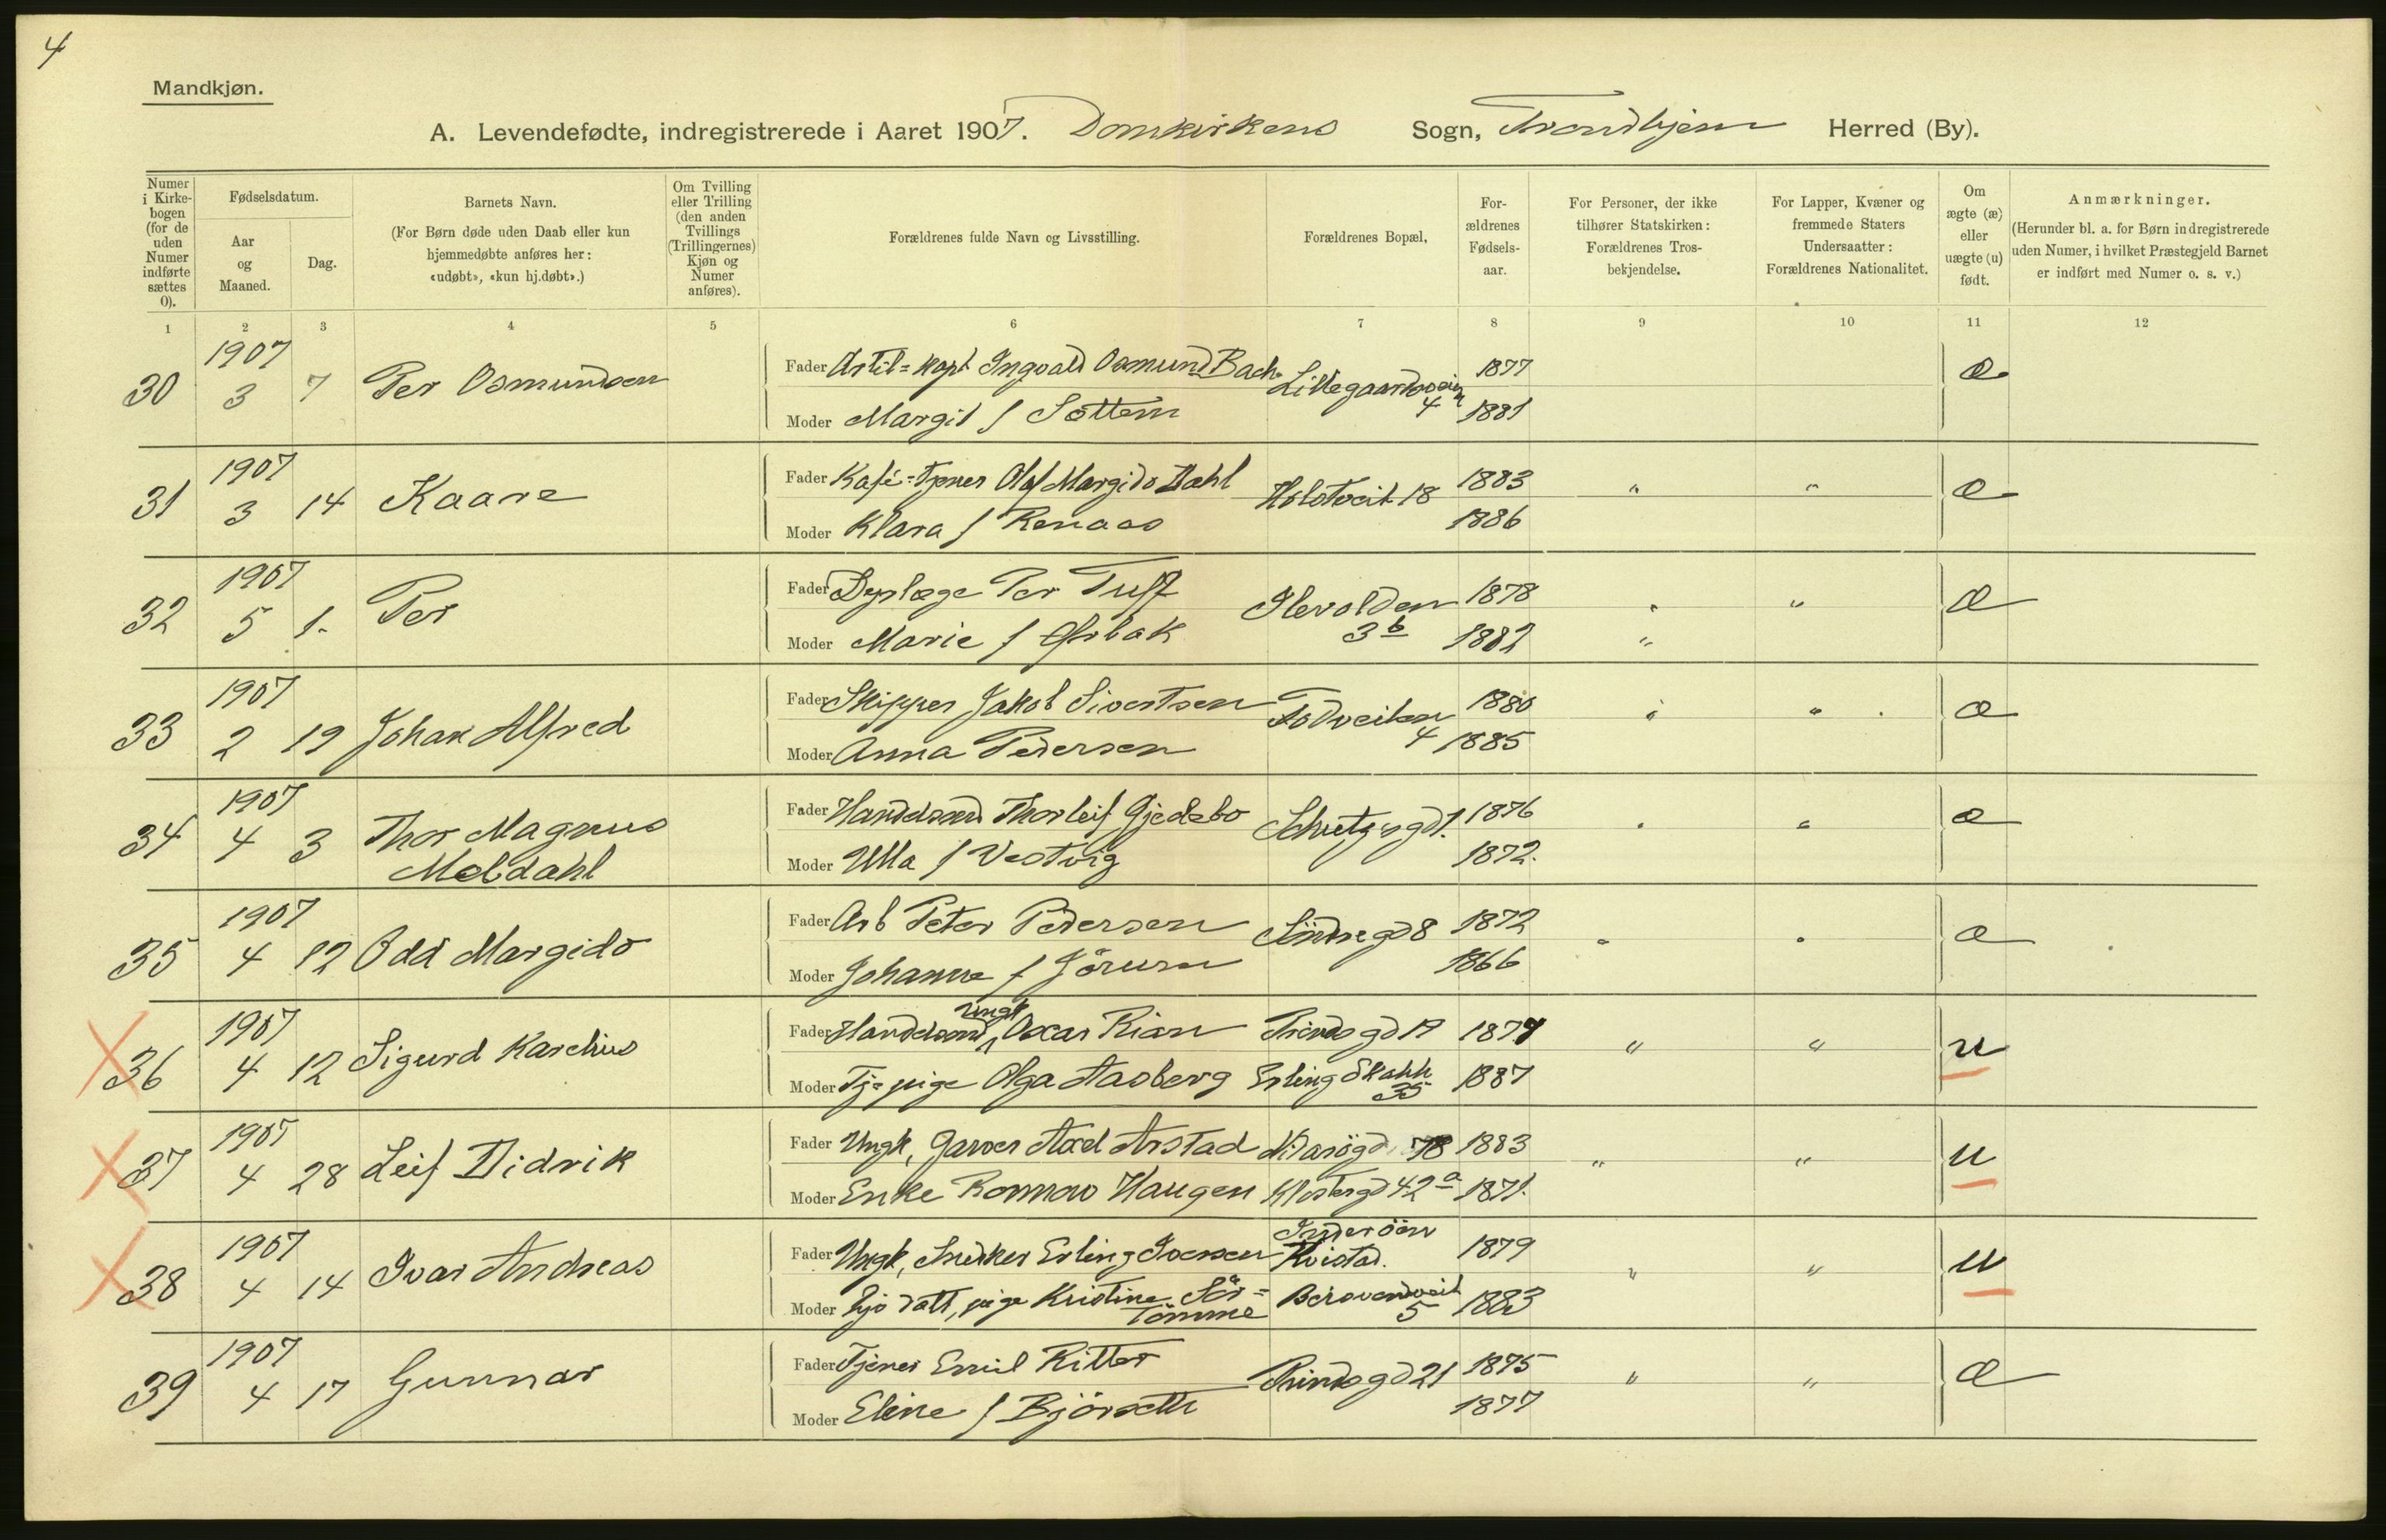 4
Mandkjøn.
A. Levendefødte, indregistrerede i Aaret 1907. Domkirkens Sogn, Trondhjem Herred (By).
Numer i Kirke-bogen (for de uden Numer indførte sættes 0).
Fødselsdatum.
Aar og Maaned.
Dag.
Barnets Navn.
(For Børn døde uden Daab eller kun hjemmedøbte anføres her: «udøbt», «kun hj.døbt».)
Om Tvilling eller Trilling (den anden Tvillings (Trillingernes) Kjøn og Numer anføres).
Forældrenes fulde Navn og Livsstilling.
Forældrenes Bopæl,
For-ældrenes Fødsels-aar.
For Personer, der ikke tilhører Statskirken: Forældrenes Tros-bekjendelse.
For Lapper, Kvæner og fremmede Staters Undersaatter: Forældrenes Nationalitet.
Om ægte (æ) eller uægte (u) født.
Anmærkninger.
(Herunder bl. a. for Børn indregistrerede uden Numer, i hvilket Præstegjeld Barnet er indført med Numer o. s. v.)
1 2 3 4 5 6 7 8 9 10 11 12
30 1907 3 7 Per Osmundsen
Fader Artil=kapt Ingvald Osmund Bach 1877 æ
Moder Margit f Sottem 4 1881
31 1907 3 14 Kaare
Fader Kafé=tjener Olaf Margido Dahl Holstveit 18 1883 " " æ
Moder Klara f Renaas 1886
32 1907 5 1. Per
Fader Dyrlæge Per Tuff Ilevolden 3b 1878 " " æ
Moder Marie f 1882 "
33 1907 2 19 Johan Alfred
Fader Skipper Jakob Sivertsen 1880 " " æ
Moder Anna Pedersen 4 1885
34 1907 4 3 Thor Magnus Moldahl
Fader Handelsmd Thorleif Gjedebo 1876 " " æ
Moder Ulla f Vestvig 1872.
35 1907 4 12 Odd Margido
Fader Arb Peter Pedersen Søndregd 8 1872 " " æ
Moder Johanna f Jörum 1866
36 1907 4 12 Sigurd Karelius
Fader Handelsmd Ungk Oscar Rian Prindsgd 19 " " u
Moder Tj=pige Olga Aasberg Erling Skakk 35 1887
37 1907 4 28 Leif Didrik
Fader Ungk, Garver Axel Arstad Nidarögd 78 1883 " " u
Moder Enke Haugen Klostergd 42a 1871.
38 1907 4 14 Ivar Andreas
Fader Ungk, Snedker Erling Iversen Inderöen Kvistad. 1879 " " u
Moder pige Kristine 5 1883
39 1907 4 17 Gunnar
Fader Tjener Emil Ritter Prindsgd 21 1875 " " æ
Moder Eline f Björseth 1877